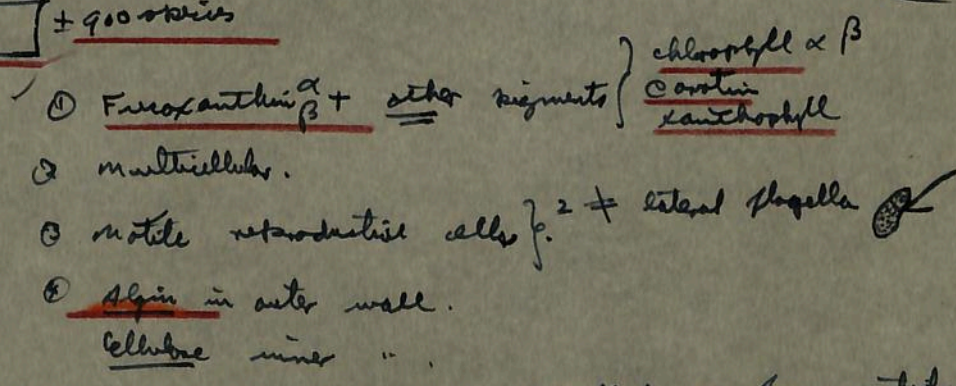 ± 900 species
① Fucoxanthin α β + other pigments } chlorophyll α β
carotin
xanthophyll
② Multicellular.
③ Motile reproductive cells } 2 ≠ lateral flagella
④ Algin in outer wall.
Cellulose inner " .